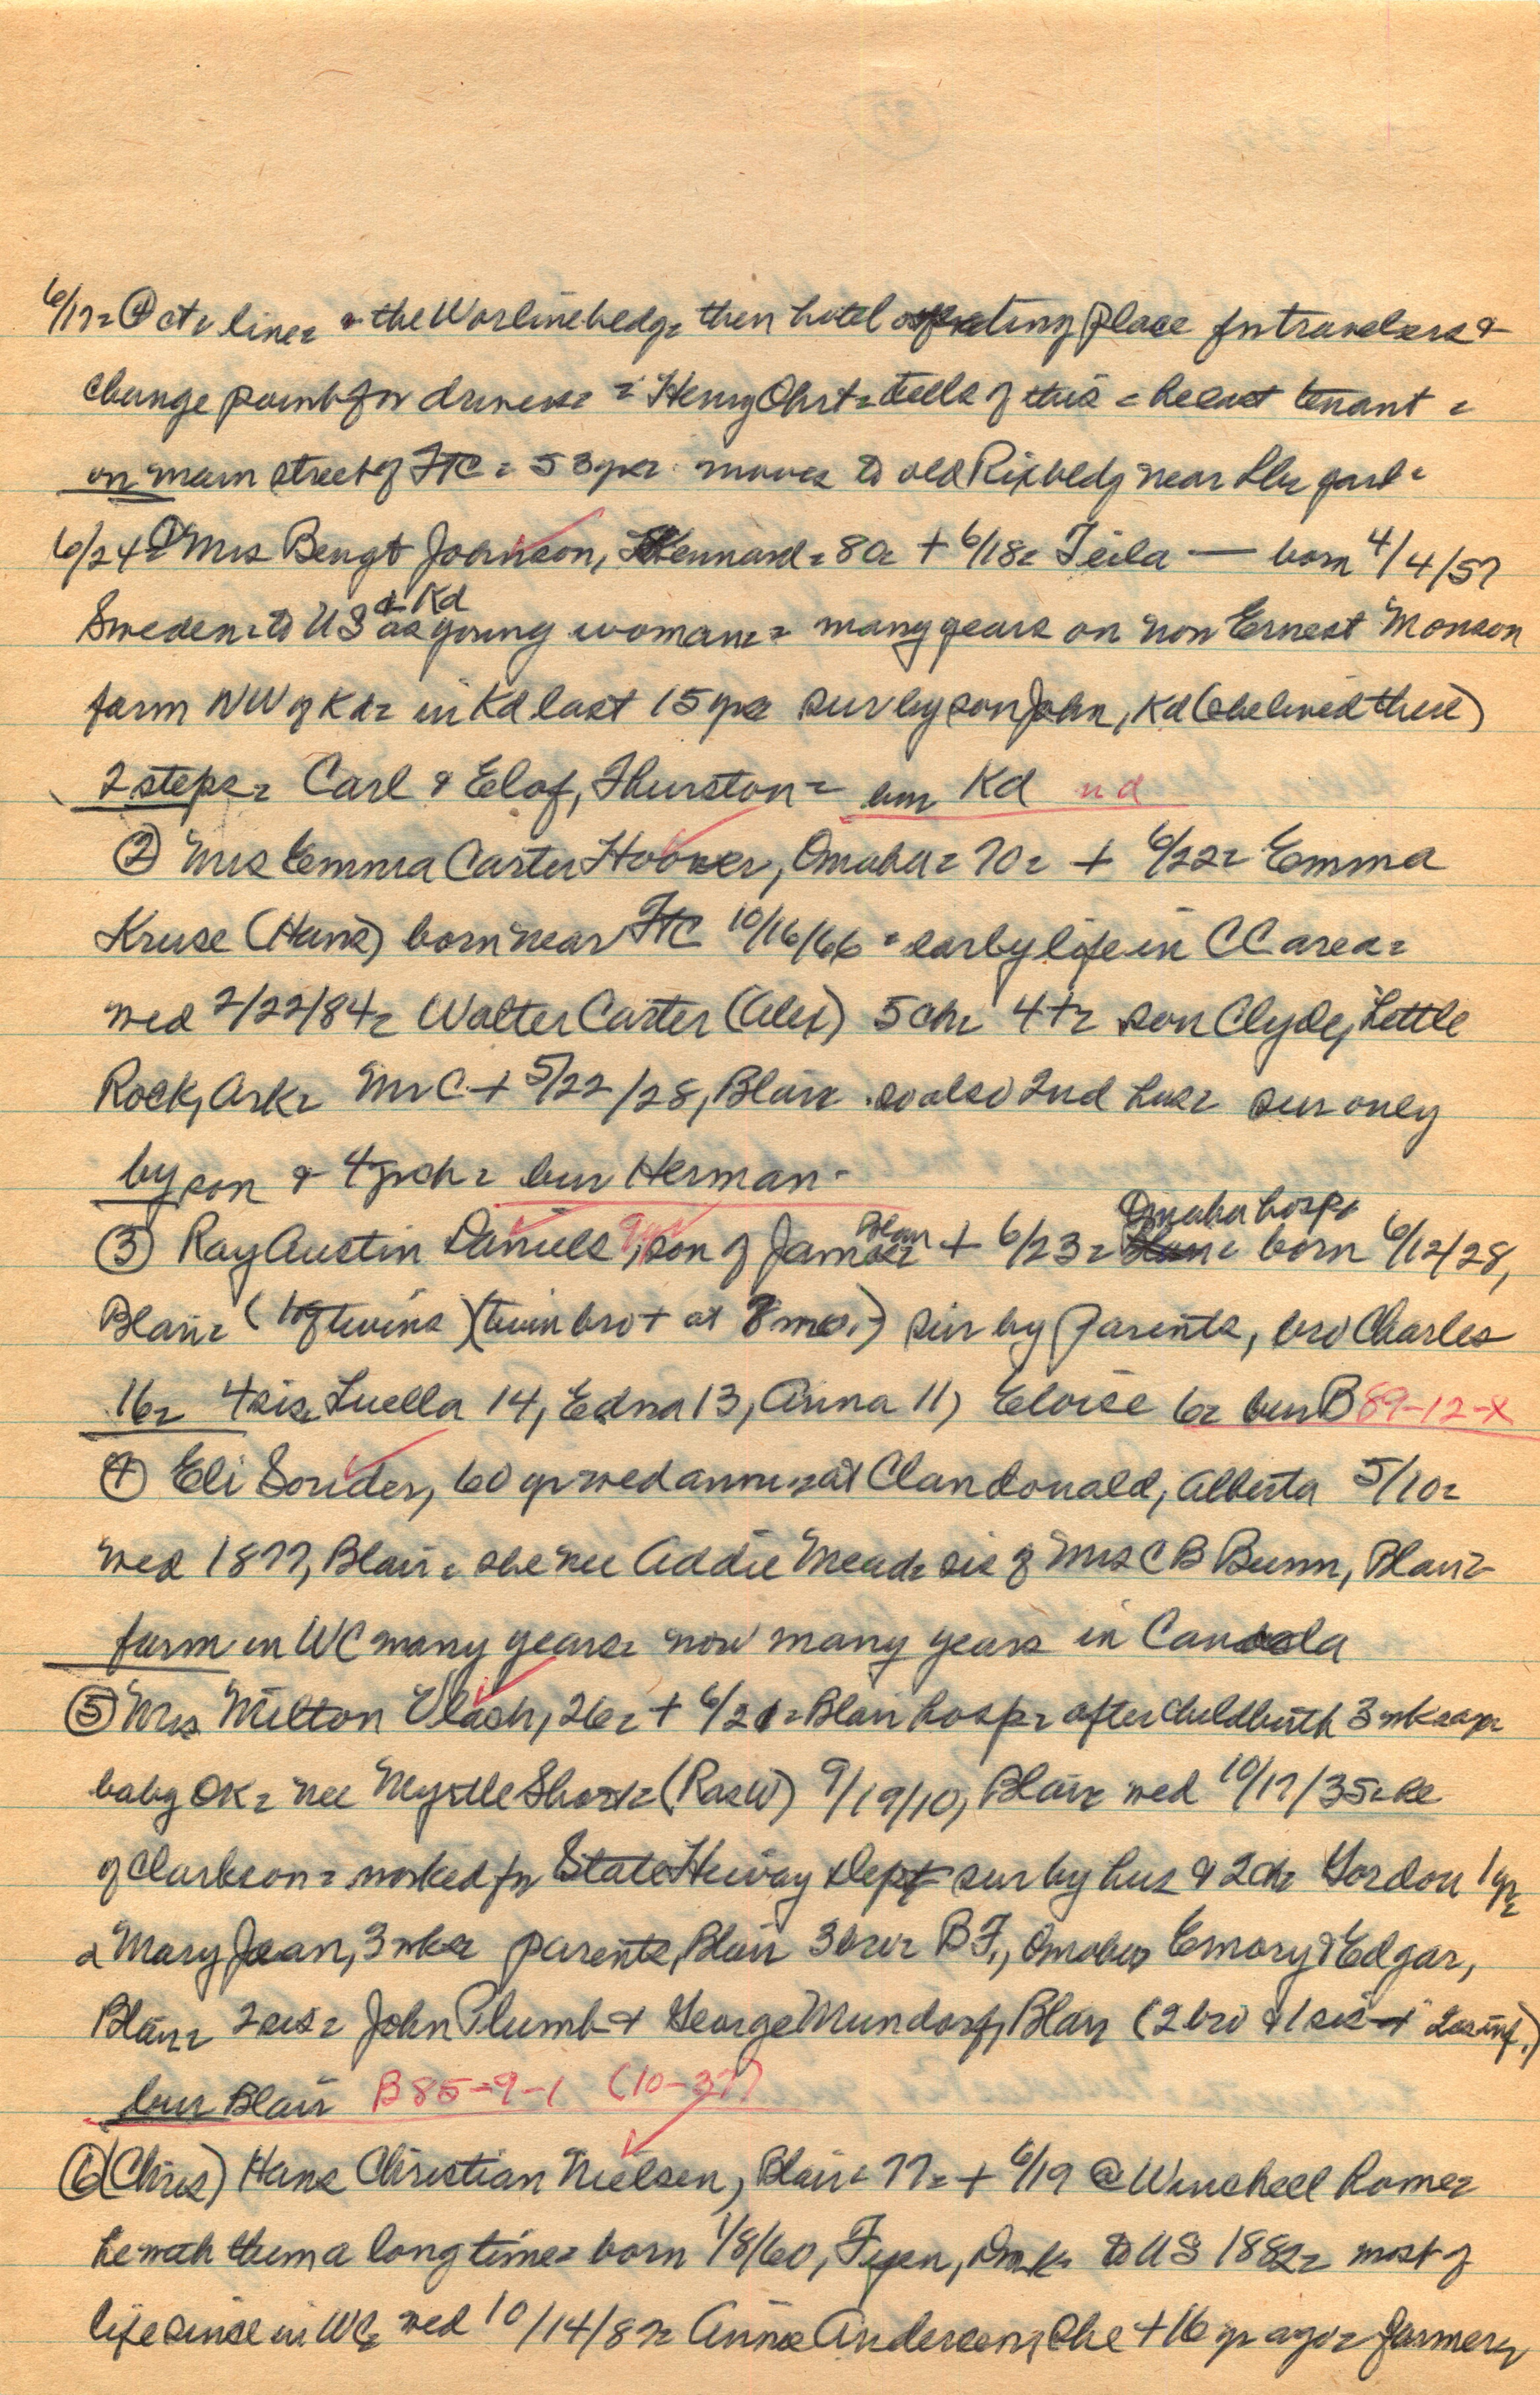 6/17= ④ ct line= & the Worline bldg= then hotel operating place for travelers &
change point for drivers = Henry Ohrt= tells of this = he last tenant =
on main street of FtC = 53 yrs moves to old Rix bldg near lbr yard=
6/24= ① Mrs Bengt Johnson, Kennard= 80= + 6/18= Teila — born 4/4/57
Sweden= to US & Kd as young woman= many years on now Ernest Monson
farm NW of Kd= in Kd last 15 yrs sur by son John, Kd (she lived there)
2 steps= Carl & Elof, Thurston= bur Kd nd
② Mrs Emma Carter Hoover, Omaha= 70= + 6/22= Emma
Kruse (Hans) born near FtC 10/16/66 = early life in CC area=
wed 2/22/84= Walter Carter (Alex) 5 ch= 4+= son Clyde, Little
Rock, Ark= Mr C + 5/22/28, Blair so also 2nd hus= sur only
by son & 4 grch= bur Herman-
Blair Omaha hosp=
③ Ray Austin Daniels, 9yr son of James= + 6/23= born 6/12/28,
Blair= (1 of twins) (twin bro + at 8 mo.) sur by parents, bro Charles
16= 4 sis= Luella 14, Edna 13, Anna 11, Eloise 6= bur B 89-12-X
④ Eli Souder, 60 yr wed anniv= at Clandonald, Alberta 5/10=
wed 1877, Blair= she nee Addie Mead= sis of Mrs C B Bunn, Blair=
farm in WC many years= now many years in Canada
⑤ Mrs Milton Vlach, 26= + 6/21= Blair hosp= after childbirth 3 wks ago=
baby OK= nee Myrtle Shork= (Ras W) 9/19/10, Blair= wed 10/17/35= he
of Clarkson= worked for State Hiway Dept sur by hus & 2 ch= Gordon 1 yr=
& Mary Jean, 3 wks= parents, Blair 3 bro= B F, Omaha, Emory & Edgar,
Blair= 2 sis= John Plumb & George Mundorf, Blair (2 bro & 1 sis + as inf.)
bur Blair B 85-9-1 (10-37)
⑥ (Chris) Hans Christian Nielsen, Blair= 77= + 6/19 @ Winchell Rome=
he with them a long time= born 1/8/60, Fyen, Dmk= to US 1882= most of
life since in WC= wed 10/14/87= Anna Anderson, she + 16 yr ago= farmer=